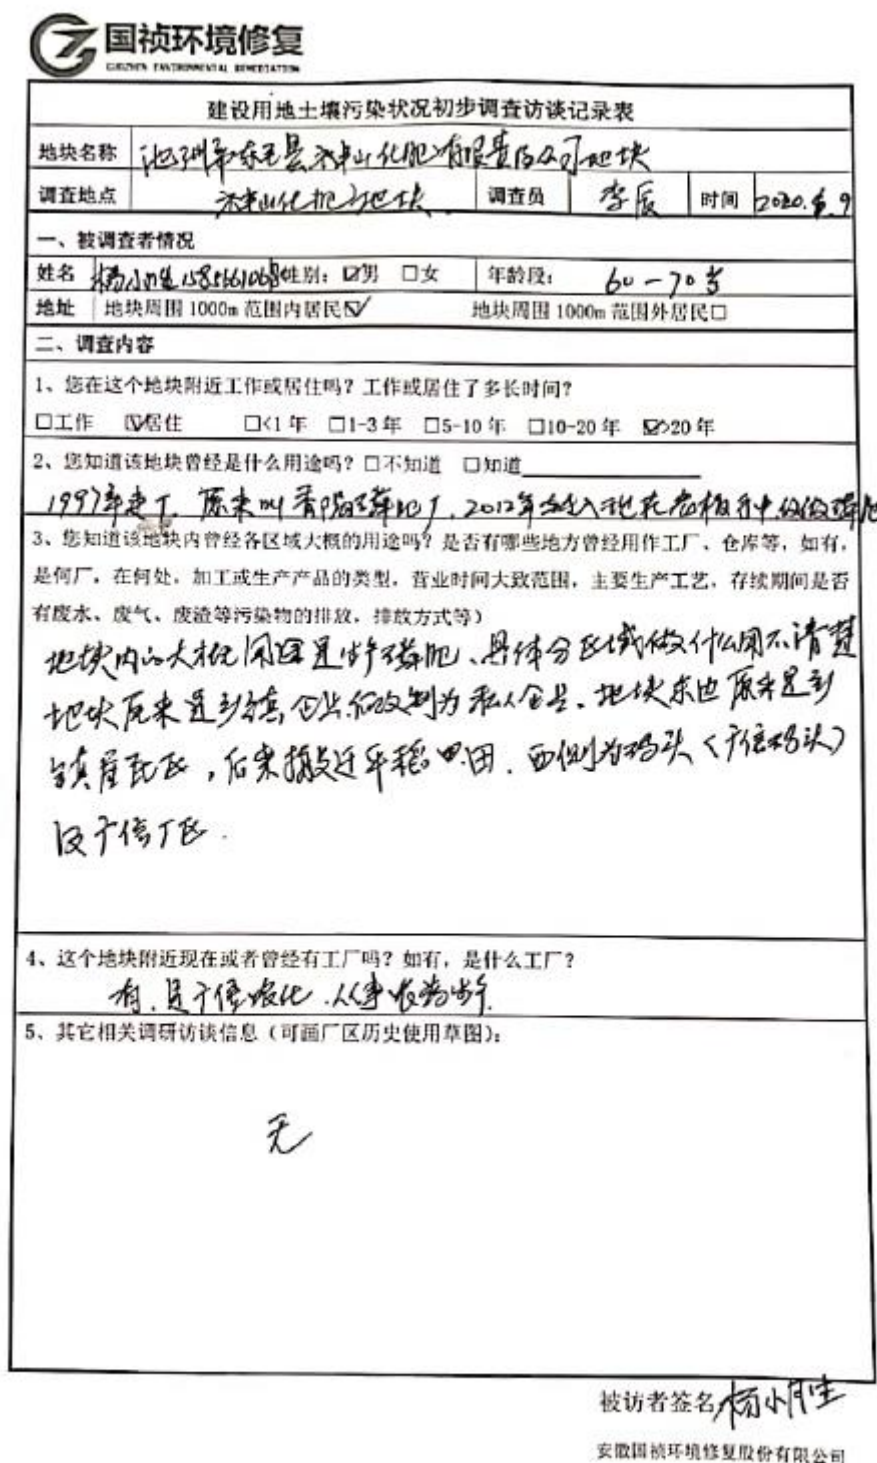 国祯环境修复
GUOZHEN ENVIRONMENTAL REMEDIATION
建设用地土壤污染状况初步调查访谈记录表
地块名称 池州市东至县 山化肥有限责任公司地块
调查地点 山化肥 地块 调查员 李辰 时间 2020.6.9
一、被调查者情况
姓名 杨小月生 性别：☑男 □女 年龄段： 60-70岁
地址 地块周围 1000m 范围内居民☑ 地块周围 1000m 范围外居民□
二、调查内容
1、您在这个地块附近工作或居住吗？工作或居住了多长时间？
□工作 ☑居住 □<1 年 □1-3 年 □5-10 年 □10-20 年 ☑>20 年
2、您知道该地块曾经是什么用途吗？□不知道 □知道
1997年建厂，原来叫 磷肥厂，2012年
3、您知道该地块内曾经各区域大概的用途吗？是否有哪些地方曾经用作工厂、仓库等，如有，
是何厂，在何处，加工或生产产品的类型，营业时间大致范围，主要生产工艺，存续期间是否
有废水、废气、废渣等污染物的排放，排放方式等）
地块内的大概用途是生产磷肥、具体分区域做什么用不清楚
地块原来是乡镇企业后改制为私人企业、地块东边原来是乡
镇居民区，后来搬迁 稻田．西侧为码头（广信码头）
及广信厂区．
4、这个地块附近现在或者曾经有工厂吗？如有，是什么工厂？
有．是广信 化．从事农药生产
5、其它相关调研访谈信息（可画厂区历史使用草图）：
无
被访者签名 杨小月生
安徽国祯环境修复股份有限公司